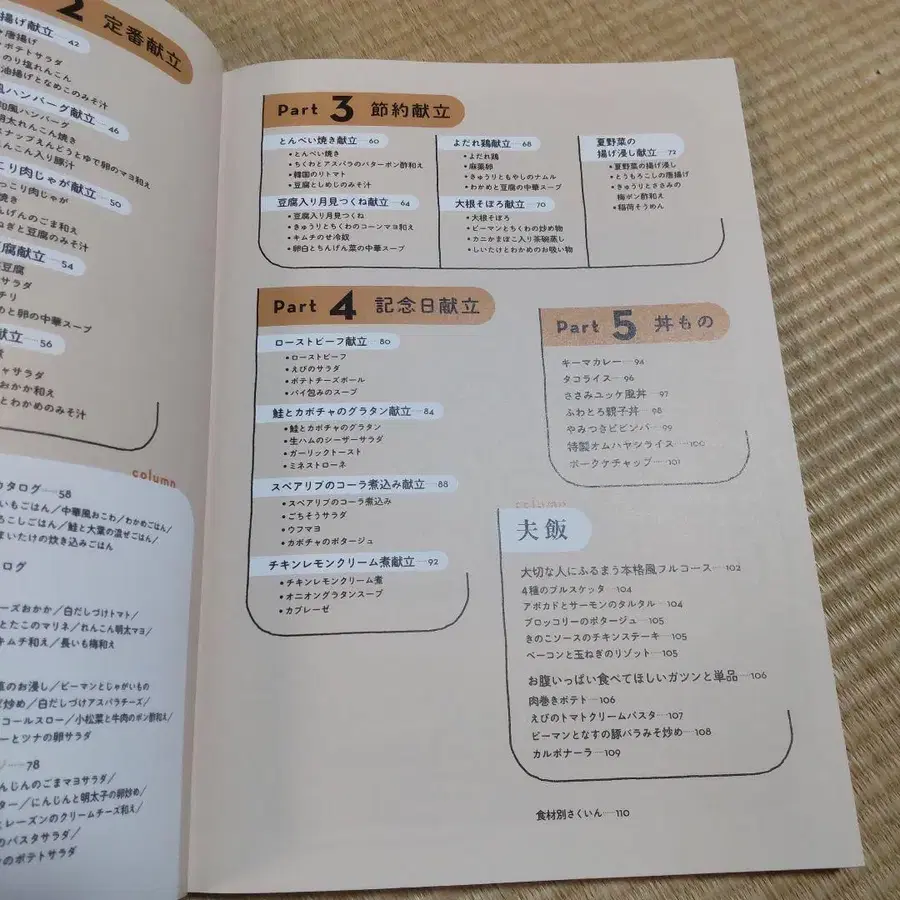 2 定番献立
揚げ献立 42
唐揚げ
ポテトサラダ
のり塩れんこん
油揚げとなめこのみそ汁
ハンバーグ献立 46
和風ハンバーグ
明太れんこん焼き
スナップえんどうとゆで卵のマヨ和え
こん入り豚汁
こり肉じゃが献立 50
っこり肉じゃが
焼き
んげんのごま和え
ねぎと豆腐のみそ汁
腐献立 54
豆腐
サラダ
チリ
めと卵の中華スープ
献立 56
煮
ャサラダ
おかか和え
とわかめのみそ汁
column
カタログ 58
いもごはん/中華風おこわ/わかめごはん/
ろこしごはん/鮭と大葉の混ぜごはん/
まいたけの炊き込みごはん
ログ
ーズおかか/白だしづけトマト/
とたこのマリネ/れんこん明太マヨ/
キムチ和え/長いも梅和え
のお浸し/ピーマンとじゃがいもの
炒め/白だしづけアスパラチーズ/
コールスロー/小松菜と牛肉のポン酢和え/
ーとツナの卵サラダ
78
んじんのごまマヨサラダ/
ター/にんじんと明太子の卵炒め/
レーズンのクリームチーズ和え/
のパスタサラダ/
のポテトサラダ
Part 3 節約献立
とんぺい焼き献立 60
・とんぺい焼き
・ちくわとアスパラのバターポン酢和え
・韓国のりトマト
・豆腐としめじのみそ汁
豆腐入り月見つくね献立 64
・豆腐入り月見つくね
・きゅうりとちくわのコーンマヨ和え
・キムチのせ冷奴
・卵白とちんげん菜の中華スープ
よだれ鶏献立 68
・よだれ鶏
・麻薬卵
・きゅうりともやしのナムル
・わかめと豆腐の中華スープ
大根そぼろ献立 70
・大根そぼろ
・ピーマンとちくわの炒め物
・カニかまぼこ入り茶碗蒸し
・しいたけとわかめのお吸い物
夏野菜の
揚げ浸し献立 72
・夏野菜の揚げ浸し
・とうもろこしの唐揚げ
・きゅうりとささみの
梅ポン酢和え
・稲荷そうめん
Part 4 記念日献立
ローストビーフ献立 80
・ローストビーフ
・えびのサラダ
・ポテトチーズボール
・パイ包みのスープ
鮭とカボチャのグラタン献立 84
・鮭とカボチャのグラタン
・生ハムのシーザーサラダ
・ガーリックトースト
・ミネストローネ
スペアリブのコーラ煮込み献立 88
・スペアリブのコーラ煮込み
・ごちそうサラダ
・ウフマヨ
・カボチャのポタージュ
チキンレモンクリーム煮献立 92
・チキンレモンクリーム煮
・オニオングラタンスープ
・カプレーゼ
Part 5 丼もの
キーマカレー 94
タコライス 96
ささみユッケ風丼 97
ふわとろ親子丼 98
やみつきビビンバ 99
特製オムハヤシライス 100
ポークケチャップ 101
column
夫飯
大切な人にふるまう本格風フルコース 102
4種のブルスケッタ 104
アボカドとサーモンのタルタル 104
ブロッコリーのポタージュ 105
きのこソースのチキンステーキ 105
ベーコンと玉ねぎのリゾット 105
お腹いっぱい食べてほしいガツンと単品 106
肉巻きポテト 106
えびのトマトクリームパスタ 107
ピーマンとなすの豚バラみそ炒め 108
カルボナーラ 109
食材別さくいん 110